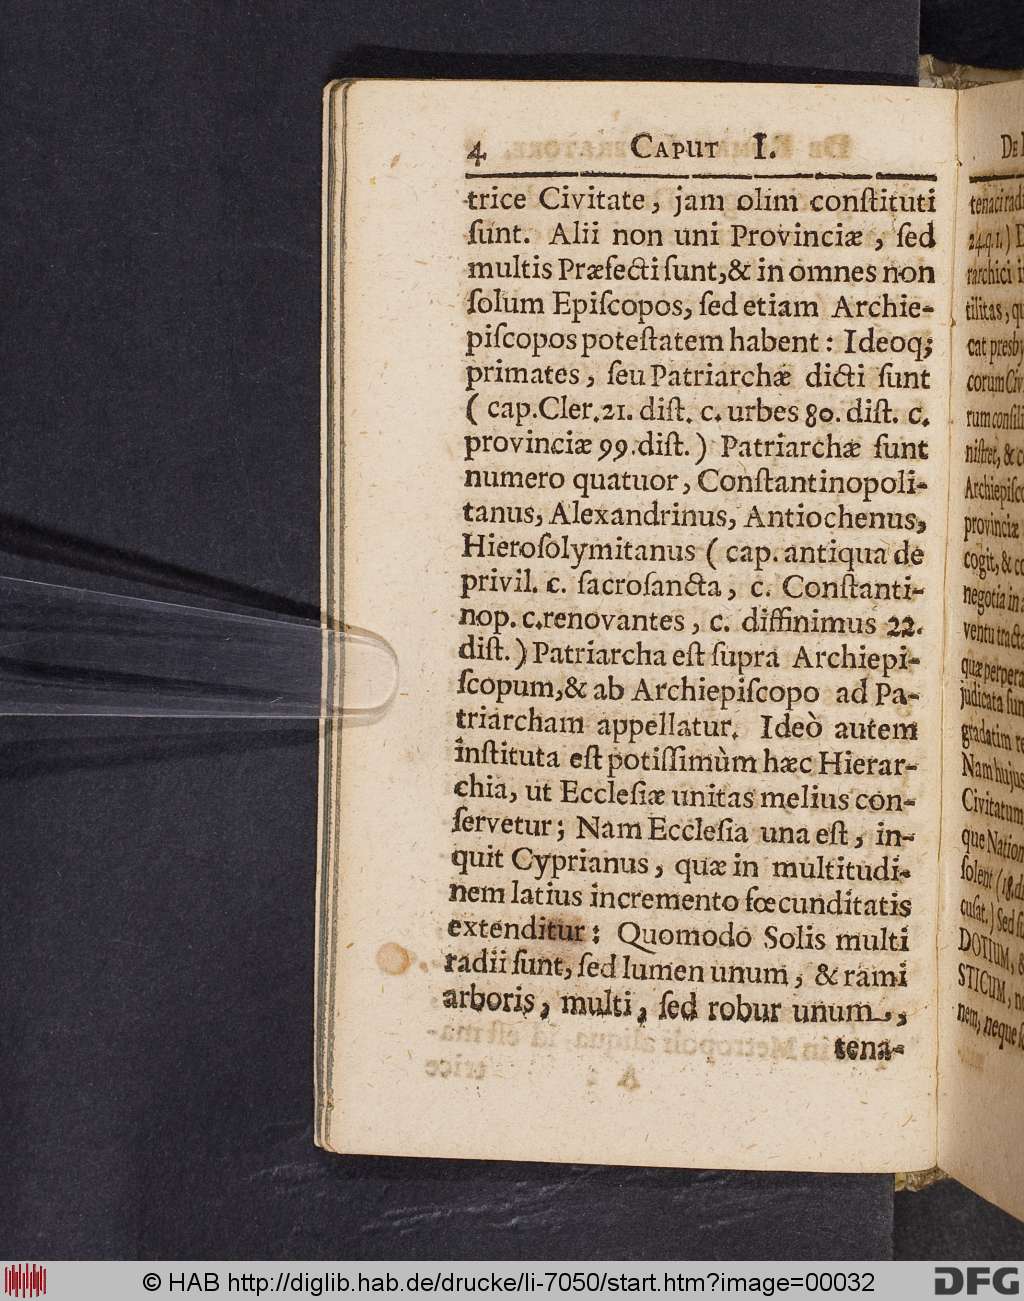 4 CAPUT I.
trice Civitate, jam olim conſtituti
ſunt. Alii non uni Provinciæ, ſed
multis Præfecti ſunt,& in omnes non
ſolum Epiſcopos, ſed etiam Archie-
piſcopos poteſtatem habent: Ideoq;
primates, ſeu Patriarchæ dicti ſunt
( cap.Cler.21. diſt. c. urbes 80. diſt. c.
provinciæ 99.diſt.) Patriarchæ ſunt
numero quatuor, Conſtantinopoli-
tanus, Alexandrinus, Antiochenus,
Hieroſolymitanus ( cap. antiqua de
privil. c. ſacroſancta, c. Conſtanti-
nop. c.renovantes, c. diffinimus 22.
diſt.) Patriarcha eſt ſupra Archiepi-
ſcopum,& ab Archiepiſcopo ad Pa-
triarcham appellatur. Ideò autem
inſtituta eſt potiſſimùm hæc Hierar-
chia, ut Eccleſiæ unitas melius con-
ſervetur; Nam Eccleſia una eſt, in-
quit Cyprianus, quæ in multitudi-
nem latius incremento fœcunditatis
extenditur: Quomodo Solis multi
radii ſunt, ſed lumen unum, & rami
arboris, multi, ſed robur unum,
tena-
DE
tenaci radi
24.q.1.) D
rarchici i
tilitas, qu
cat presby
corum Civ
rum conſili
niſtret, & c
Archiepiſc
provinciæ
cogit, & c
negotia in
ventu tract
quæ perpera
judicata ſun
gradatim re
Nam hujus
Civitatum
que Nation
ſolent (18.d
cuſat.) Sed ſi
DOTIUM, &
STICUM, n
nem, neque ſ
© HAB http://diglib.hab.de/drucke/li-7050/start.htm?image=00032
DFG